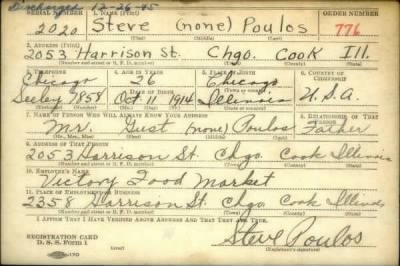 Discharged 12-26-45
SERIAL NUMBER 1. NAME (Print) ORDER NUMBER
2020 Steve (none) Poulos 776
(First) (Middle) (Last)
2. ADDRESS (Print)
2053 Harrison St. Chgo. Cook Ill.
(Number and street or R. F. D. number) (Town) (County) (State)
3. TELEPHONE 4. AGE IN YEARS 5. PLACE OF BIRTH 6. COUNTRY OF CITIZENSHIP
Chicago 26 Chicago
DATE OF BIRTH
Seeley 7858 Oct. 14 1914 Illinois U.S.A.
7. NAME OF PERSON WHO WILL ALWAYS KNOW YOUR ADDRESS 8. RELATIONSHIP OF THAT PERSON
Mr. Gust (none) Poulos Father
(Mr., Mrs., Miss) (First) (Middle) (Last)
9. ADDRESS OF THAT PERSON
2053 Harrison St. Chgo. Cook Illinois
(Number and street or R. F. D. number) (Town) (County) (State)
10. EMPLOYER'S NAME
Victory Food Market
11. PLACE OF EMPLOYMENT OR BUSINESS
2358 Harrison St. Chgo. Cook Illinois
(Number and street or R. F. D. number) (Town) (County) (State)
I AFFIRM THAT I HAVE VERIFIED ABOVE ANSWERS AND THAT THEY ARE TRUE.
REGISTRATION CARD
D. S. S. Form 1
Steve Poulos
(Registrant's signature)